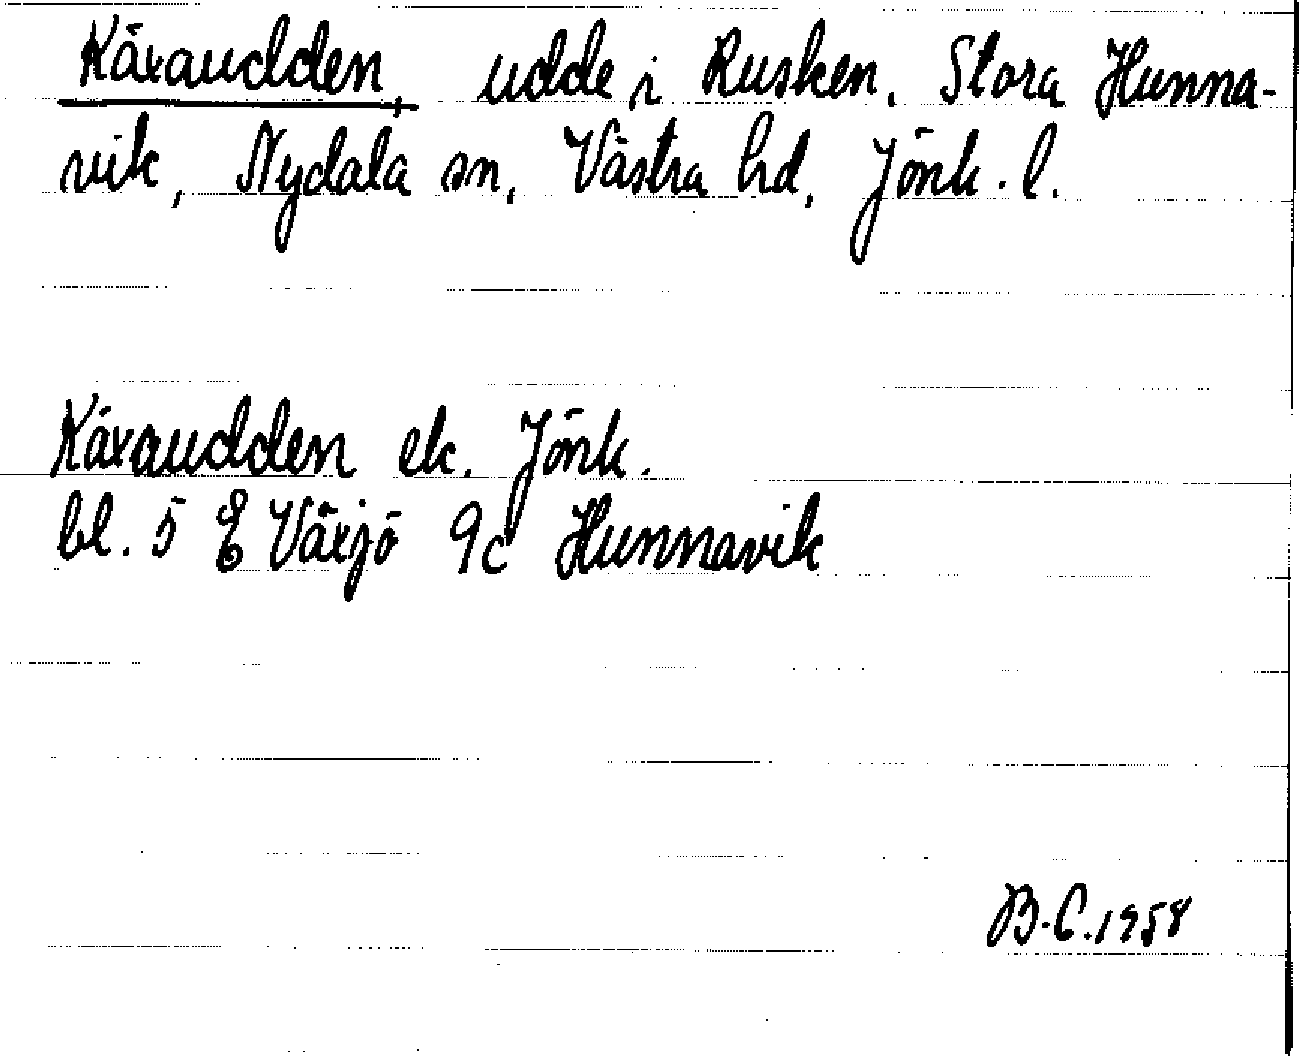 Käxaudden, udde i Rusken, Stora Hunna-
vik, Nydala sn, Västra hd, Jönk. l.
Käxaudden ek. Jönk.
bl. 5 E Växjö 9c Hunnavik
B.C. 1958